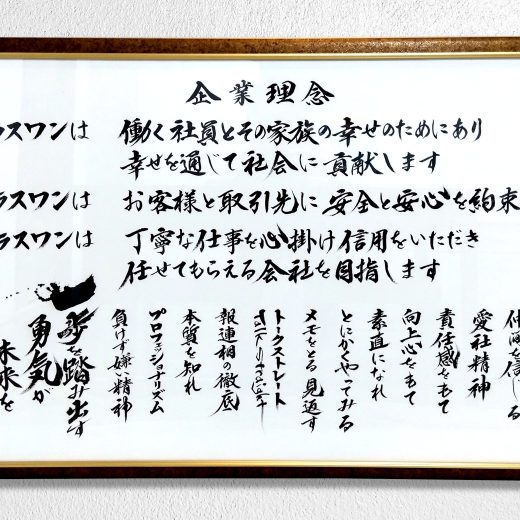 企業理念
ラスワンは 働く社員とその家族の幸せのためにあり
幸せを通じて社会に貢献します
ラスワンは お客様と取引先に安全と安心を約束
ラスワンは 丁寧な仕事を心掛け信用をいただき
任せてもらえる会社を目指します
仲間を信じる
愛社精神
責任感をもて
向上心をもて
素直になれ
とにかくやってみる
メモをとる見返す
トークストレート
報連相の徹底
本質を知れ
プロフェショナリズム
負けず嫌精神
一歩を踏み出す
勇気が
未来を